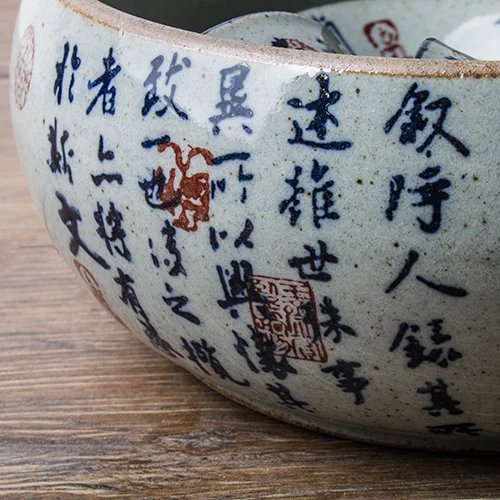 叙時人錄其
述雖世殊事
異所以興懷其
致一也後之
者亦將有
於斯文